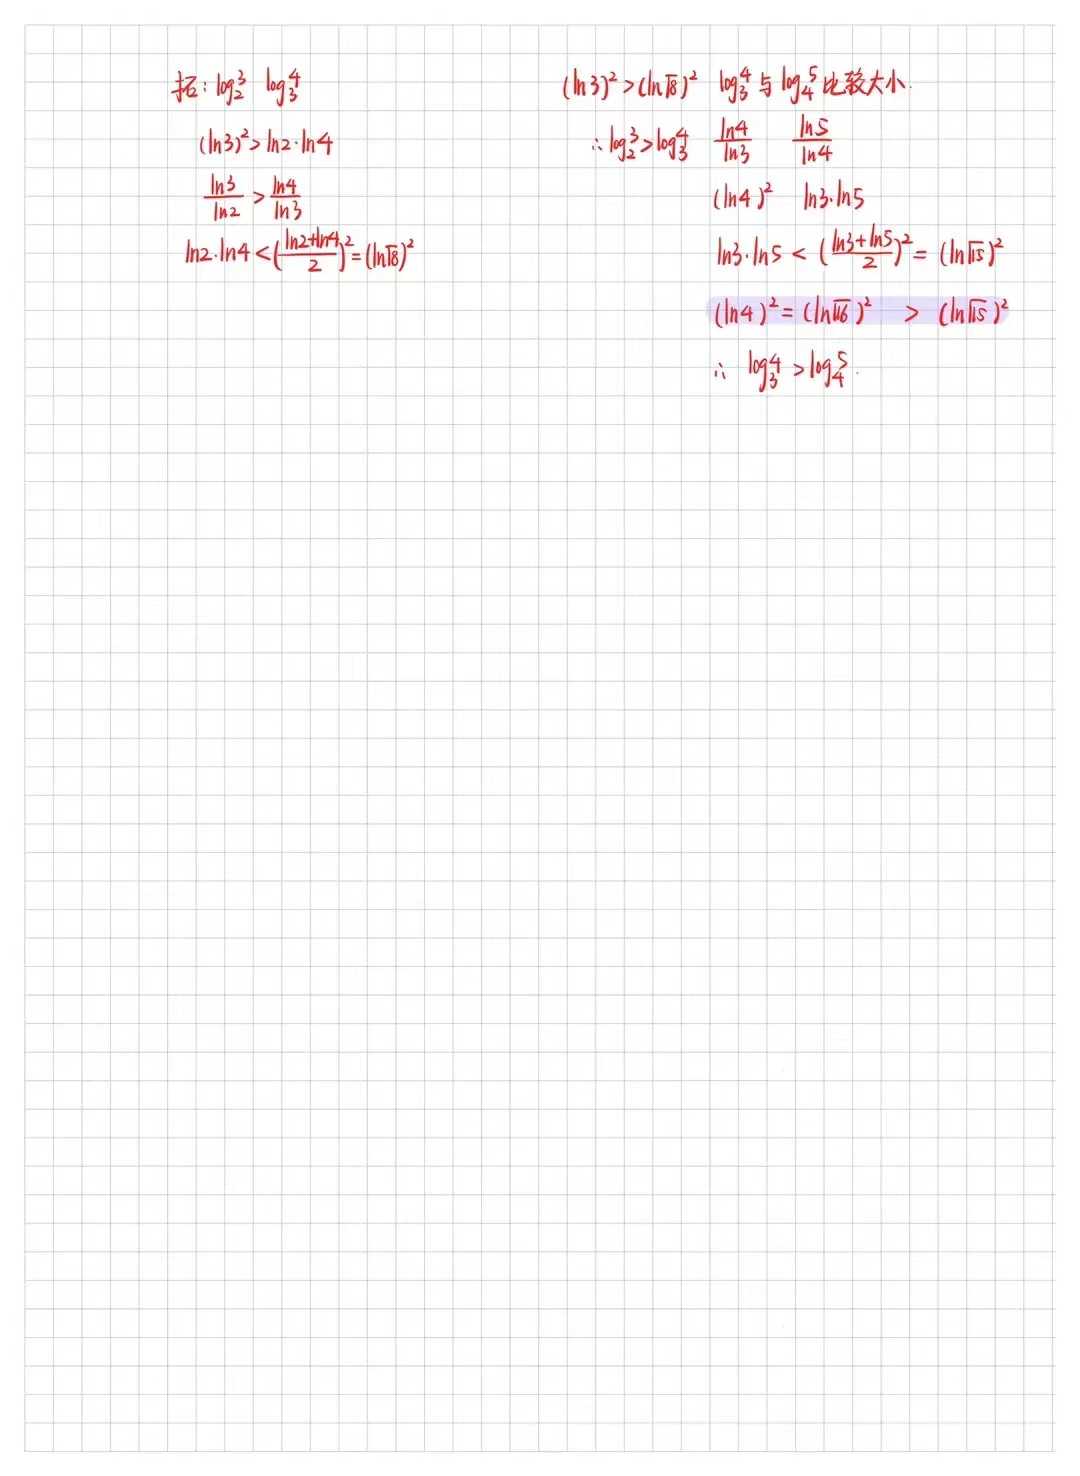 拓: log₂³ log₃⁴
(ln3)² > ln2·ln4
ln3/ln2 > ln4/ln3
ln2·ln4 < ((ln2+ln4)/2)² = (ln√8)²
(ln3)² > (ln√8)²
∴ log₂³ > log₃⁴
log₃⁴ 与 log₄⁵ 比较大小.
ln4/ln3 ln5/ln4
(ln4)² ln3·ln5
ln3·ln5 < ((ln3+ln5)/2)² = (ln√15)²
(ln4)² = (ln√16)² > (ln√15)²
∴ log₃⁴ > log₄⁵.